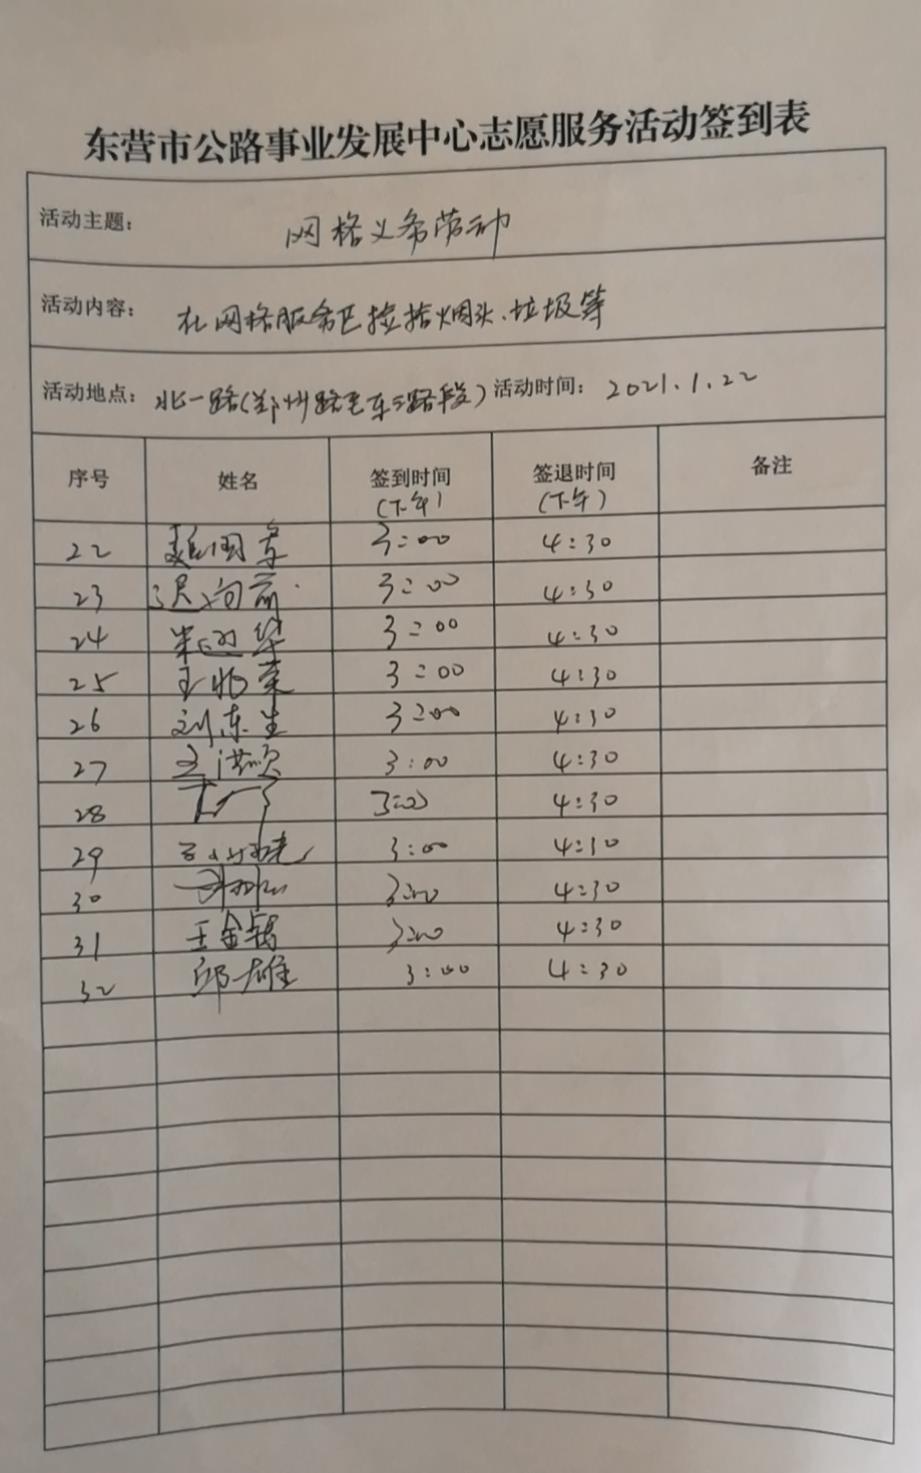 东营市公路事业发展中心志愿服务活动签到表
活动主题： 网格义务劳动
活动内容： 在网格服务区捡拾烟头、垃圾等
活动地点： 北一路(郑州路至东三路段) 活动时间： 2021.1.22
序号 姓名 签到时间 签退时间 备注
(下午) (下午)
22 赵国 3:00 4:30
23 迟向前 3:00 4:30
24 朱迎华 3:00 4:30
25 王兆荣 3:00 4:30
26 刘东生 3:00 4:30
27 3:00 4:30
28 3:00 4:30
29 3:00 4:30
30 3:00 4:30
31 王金锦 3:00 4:30
32 邱雄 3:00 4:30